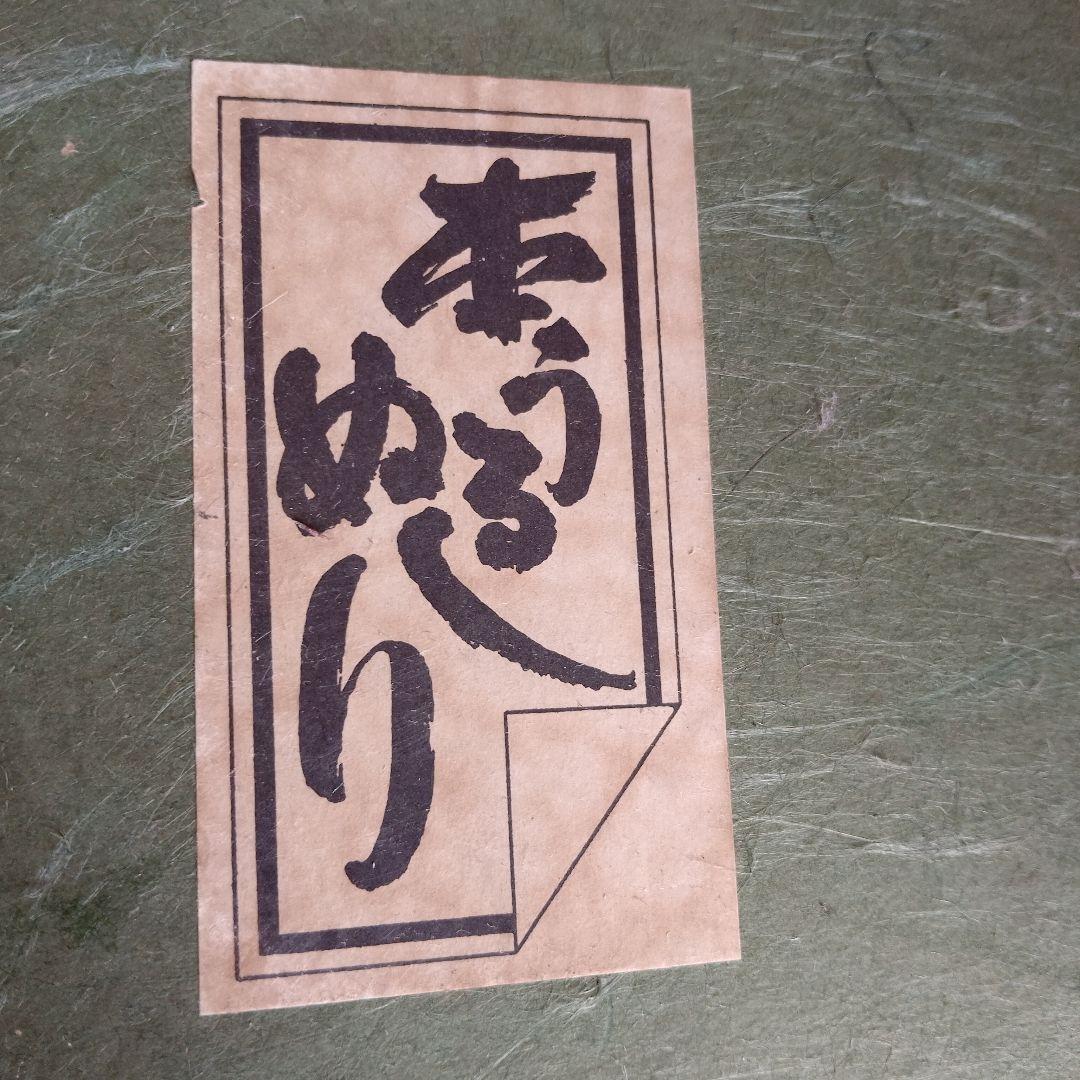 本うるし
ぬり